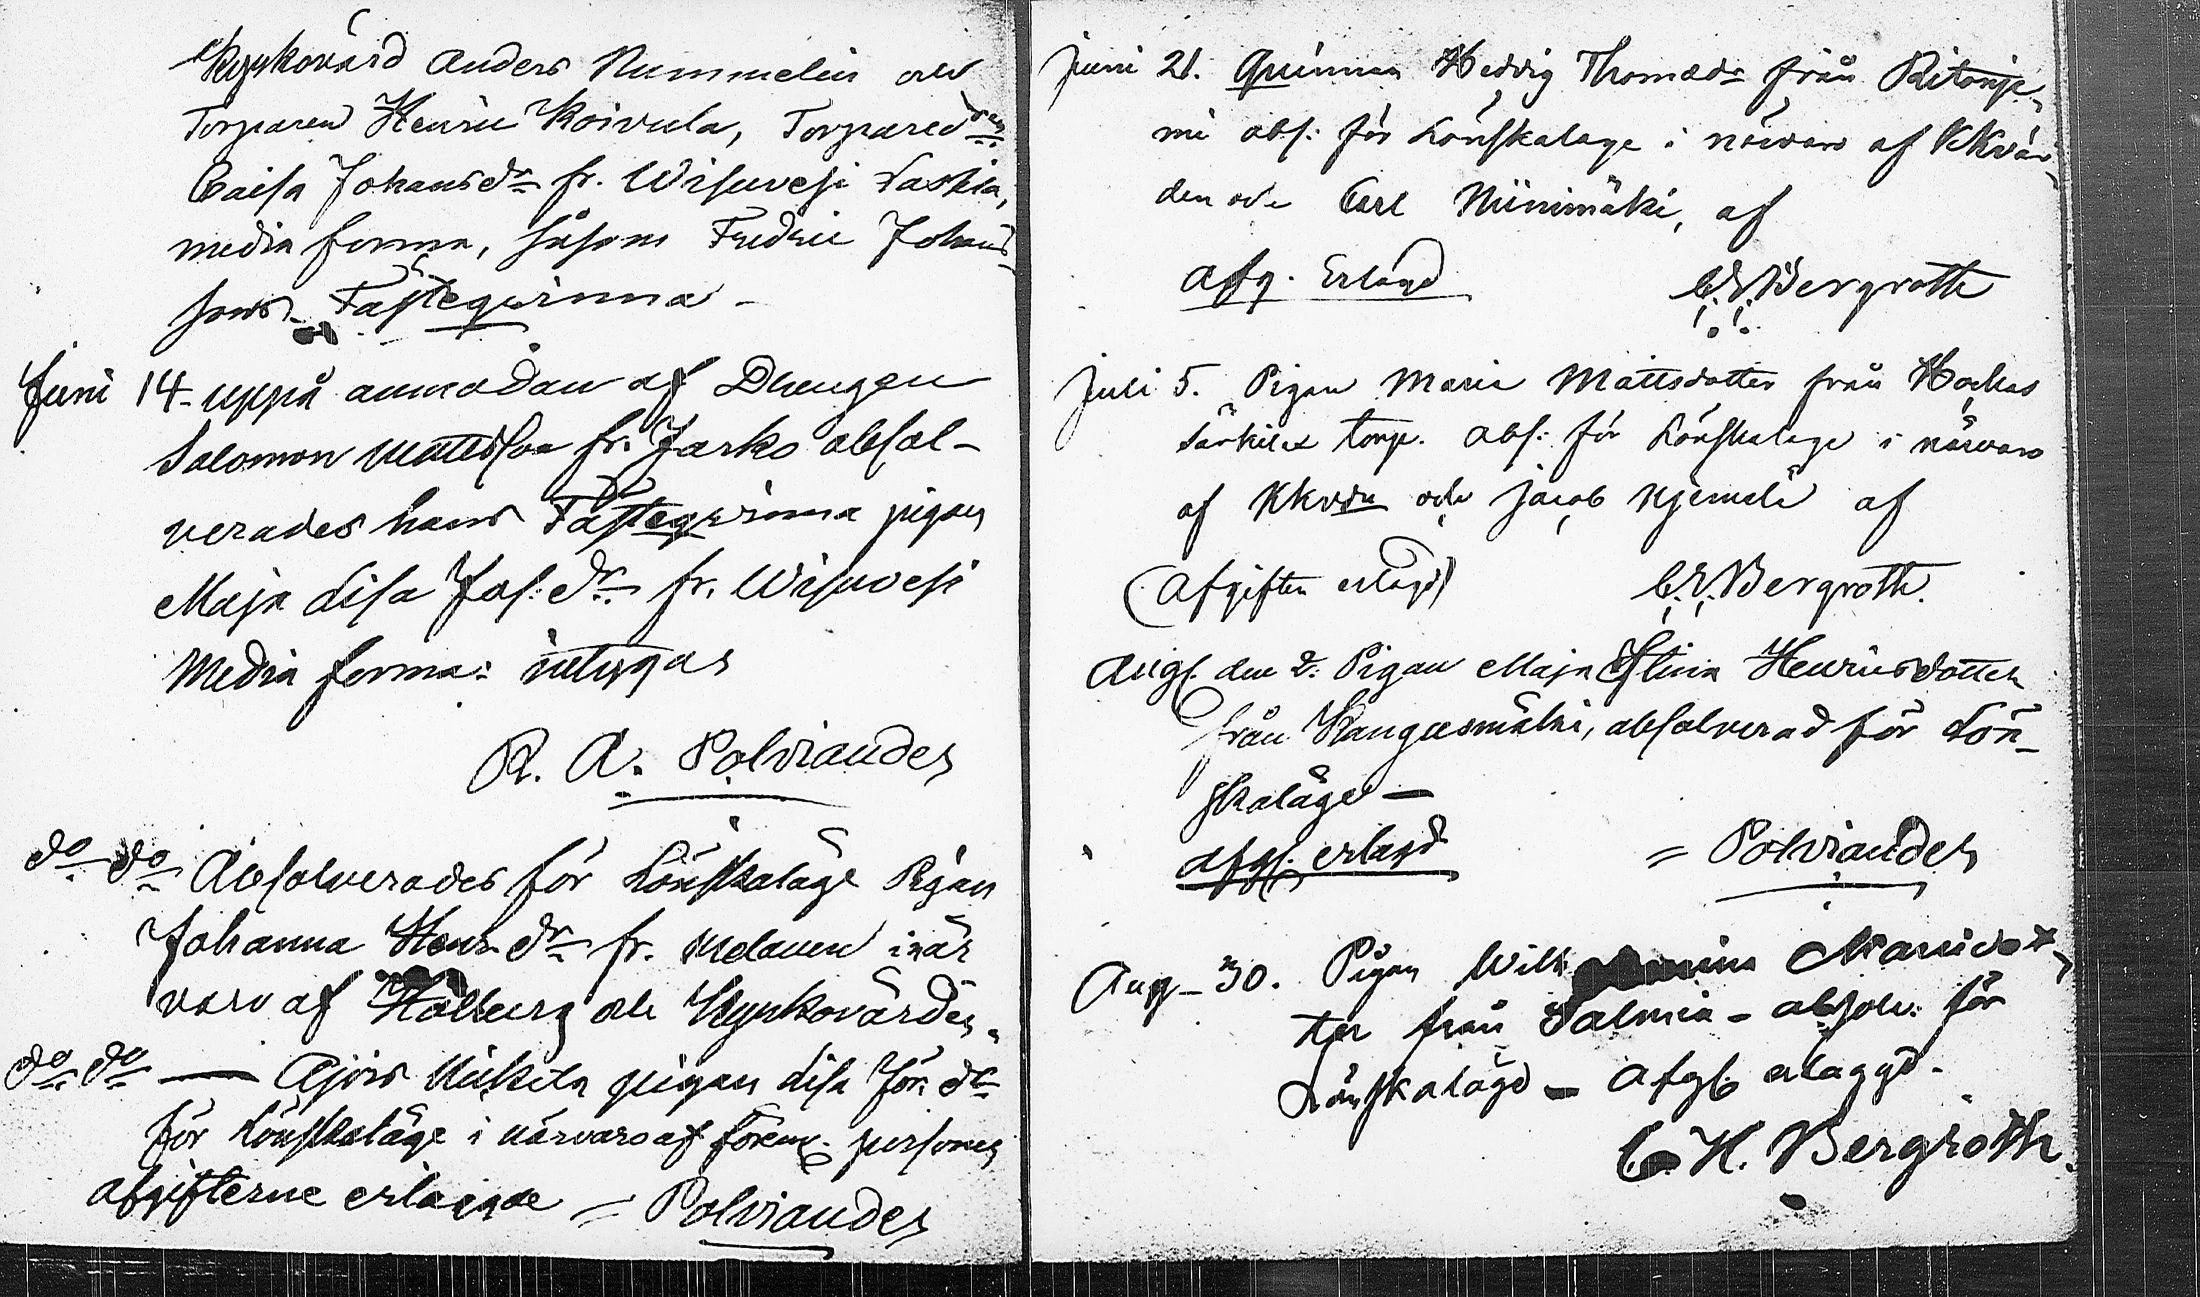 Kyrkovärd Anders Nummelin och
Torparen Henric Koivula, Torpared:
Caisa Johansdr fr. Wisuvesi
media forma, såsom Fredric Johans
sons Fästeqvinna -
Juni 14. uppå anmodan af Drengen
Salomon Mattsson fr. Jarko absol-
verades hans Fästeqvinna pigan
Maja Lisa Jos: dr fr. Wisuvesi
Media forma: intygas
R. A. Polviander
do do Absolverades för Lönskaläge Pigan
Johanna Henr dr fr. i när
varo af Hallberg och Kyrkovärden.
do do — pigan Lisa Joh. dr
för Lönskaläge i närvaro af förenä. personer
afgifterne erlagde = Polviander
Juni 21. Quinnan Hedvig Thomædr från Ritanje-
mi abs: för Lönskalage i närvaro af Kkvär
den och Carl Niinimäki, af
Afg. Erlagd C.E. Bergroth
Juli 5. Pigan Maria Mattsdotter från
Särkilax torp. abs: för Lönskalage i närvaro
af Kkvdn och Jacob af
(Afgiften erlagd) C.E. Bergroth.
Aug. den 2. Pigan Maja Stina Henricsdotter
från Kangasmäki, absolverad för Lön-
skaläge —
afg. erlagd = Polviander
Aug - 30. Pigan Wilhelmina
ter från Salmia - absolv: för
Lönskaläge - Afg. erlaggd.
C. H. Bergroth.